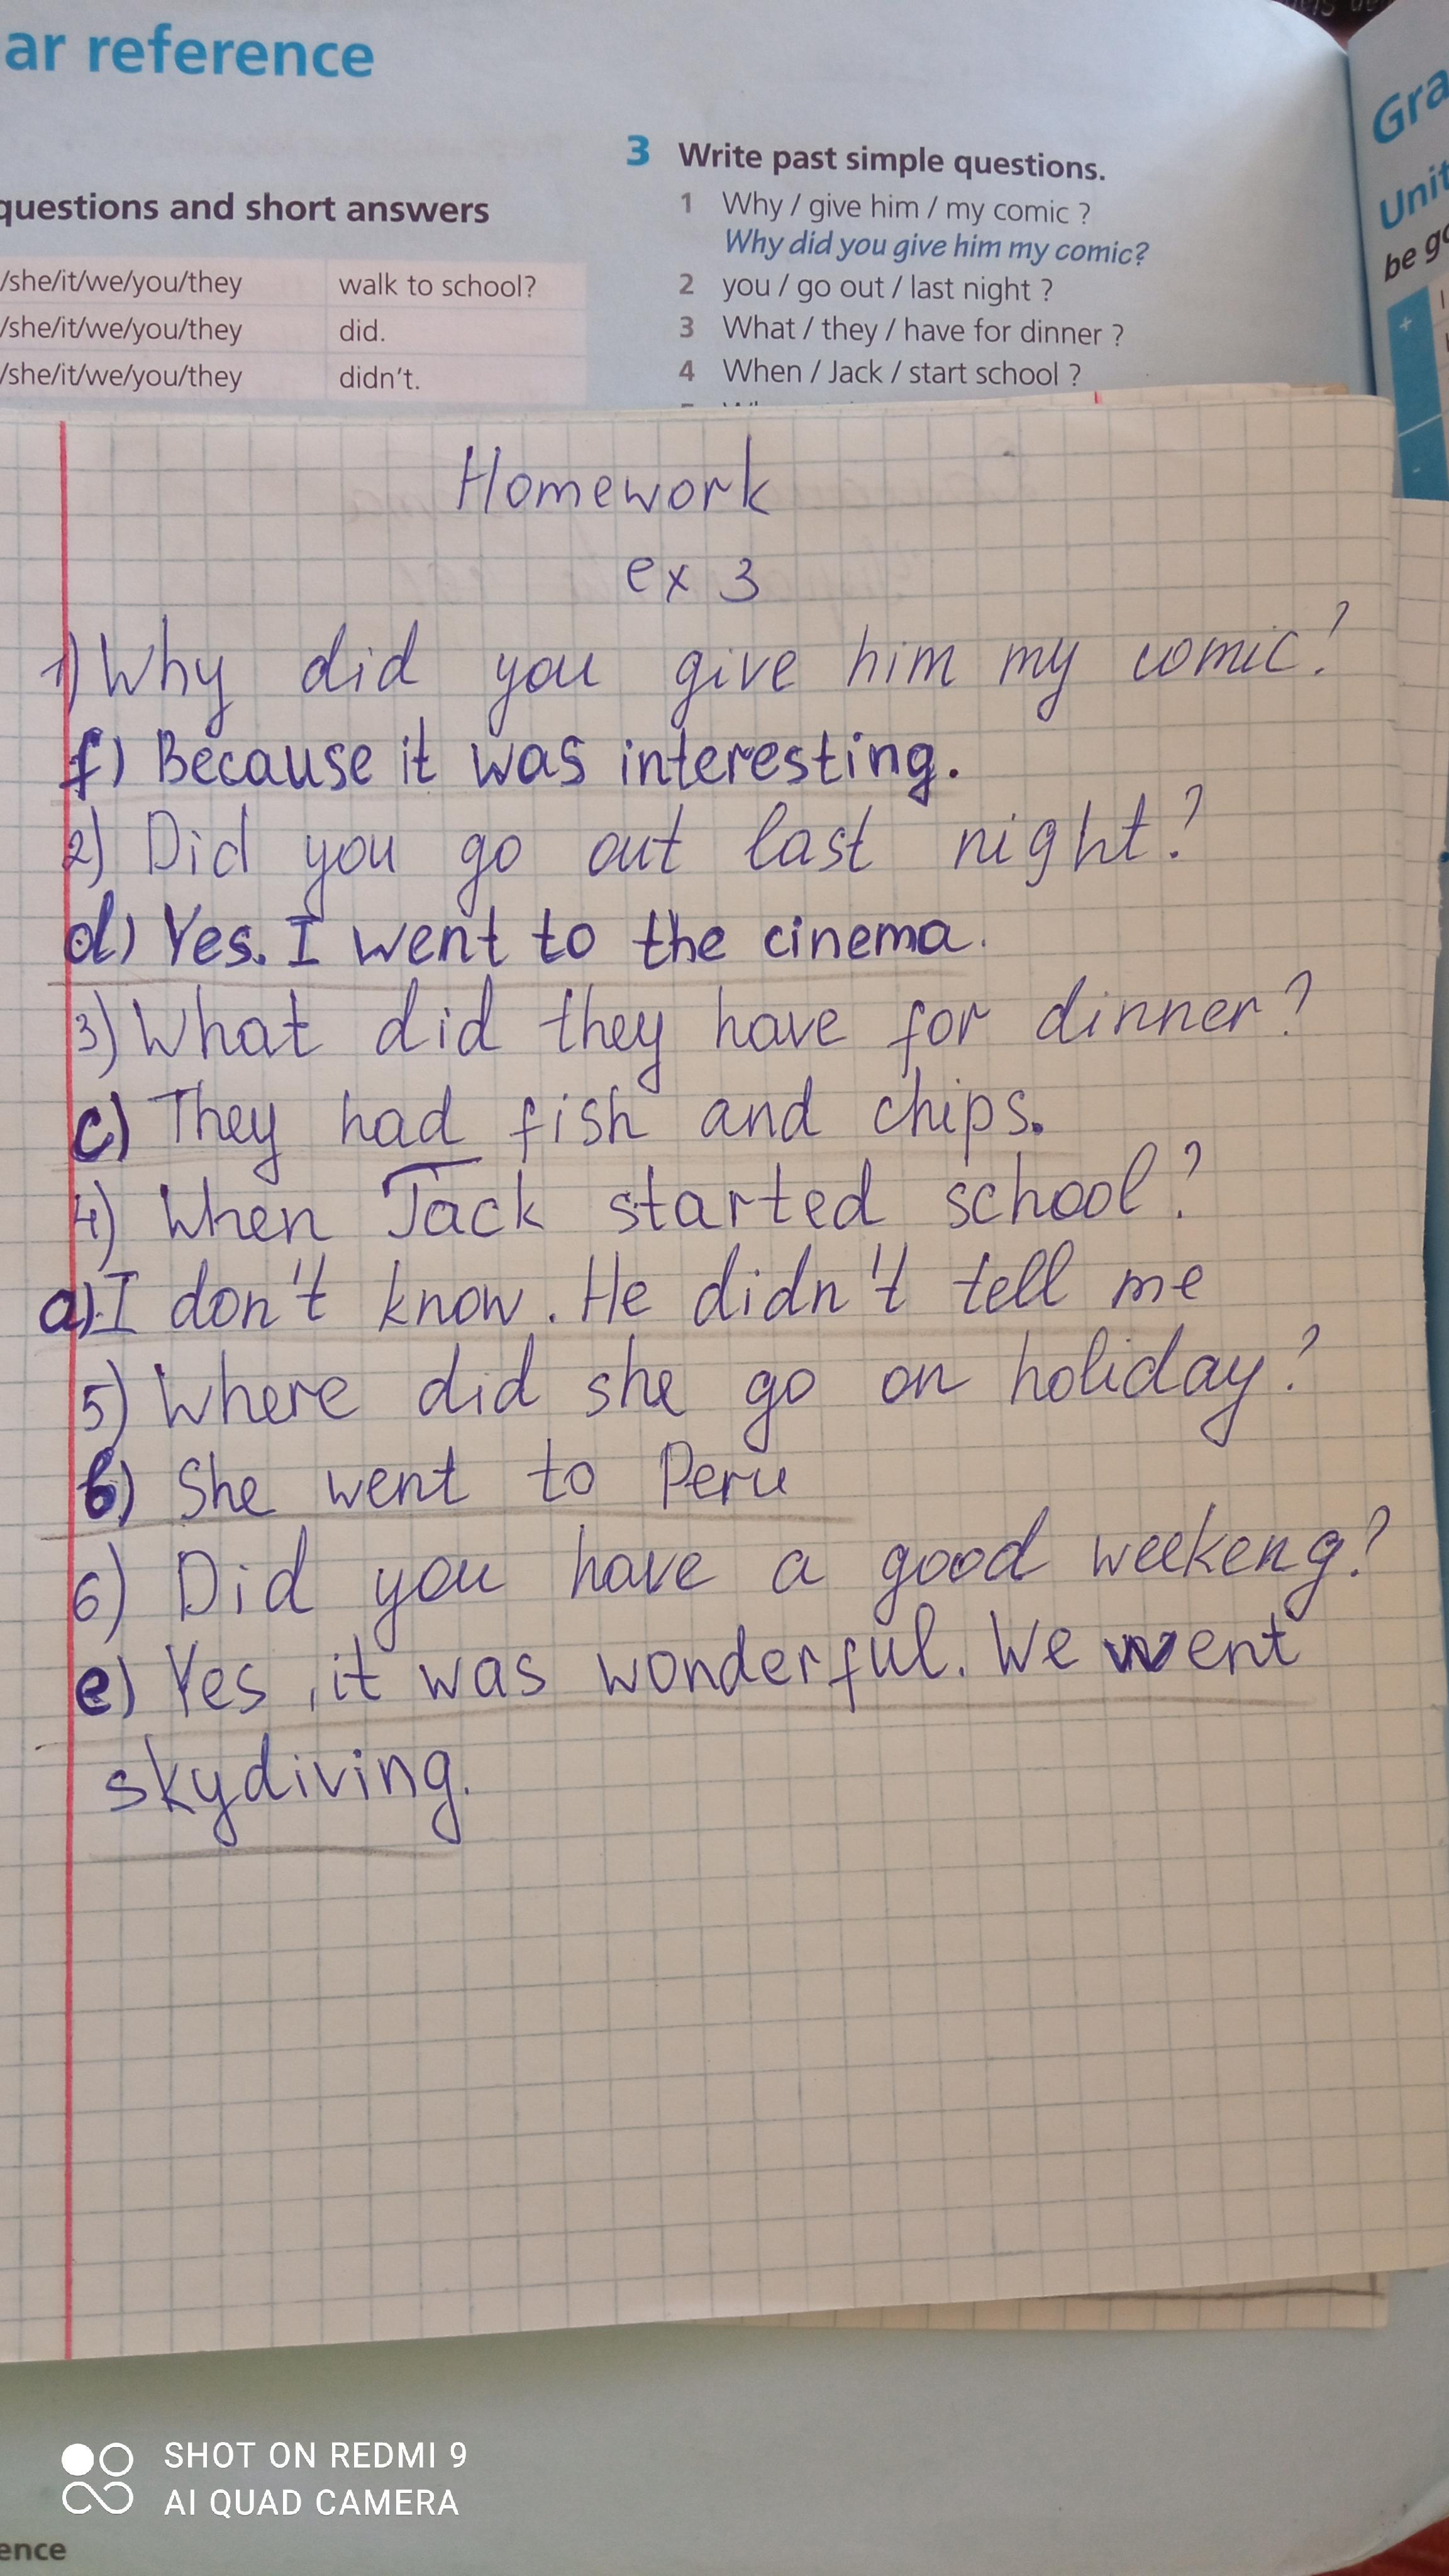 ar reference
questions and short answers
/she/it/we/you/they walk to school?
/she/it/we/you/they did.
/she/it/we/you/they didn't.
3 Write past simple questions.
1 Why / give him / my comic ?
Why did you give him my comic?
2 you / go out / last night ?
3 What / they / have for dinner ?
4 When / Jack / start school ?
Gra
Unit
be go
Homework
ex 3
1) Why did you give him my comic?
f) Because it was interesting.
2) Did you go out last night?
d) Yes. I went to the cinema.
3) What did they have for dinner?
c) They had fish and chips.
4) When Jack started school?
a) I don't know. He didn't tell me
5) Where did she go on holiday?
b) She went to Peru
6) Did you have a good weekeng?
e) Yes, it was wonderful. We went
skydiving.
SHOT ON REDMI 9
AI QUAD CAMERA
ence